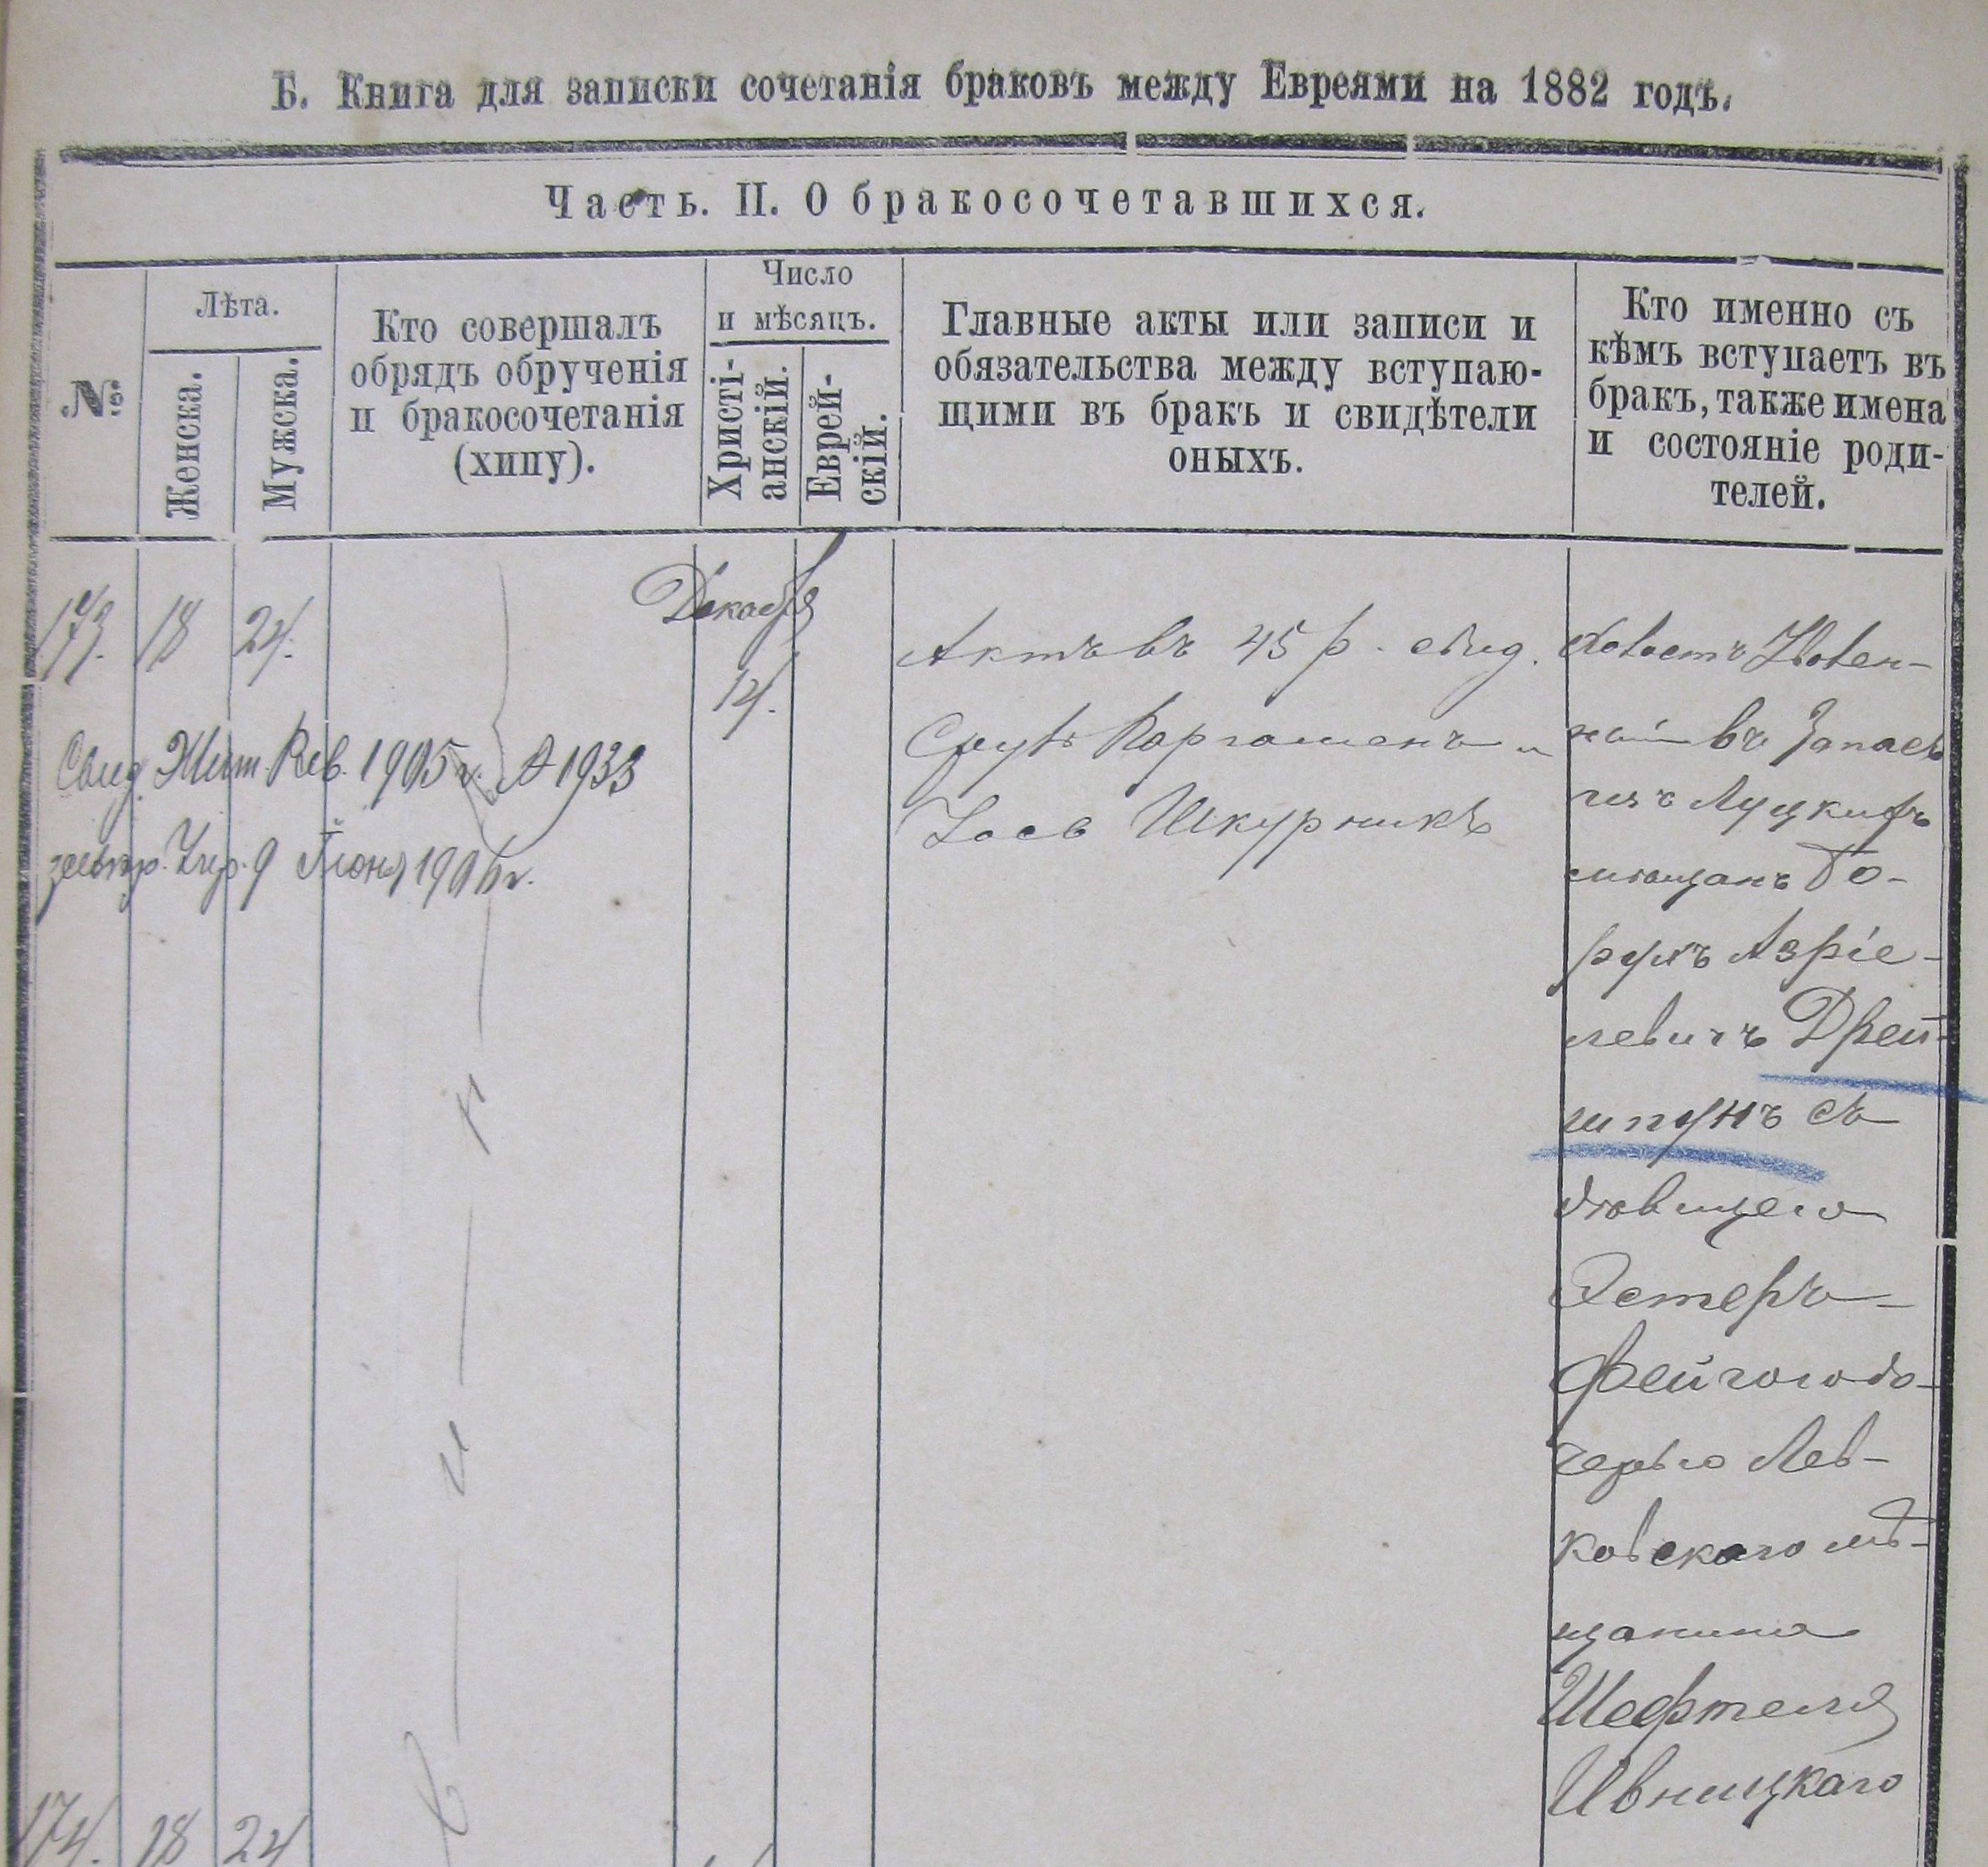 Б. Книга для записки сочетанія браковъ между Евреями на 1882 годъ.
Часть. II. О бракосочетавшихся.
№
Лѣта.
Женска.
Мужска.
Кто совершалъ
обрядъ обрученія
и бракосочетанія
(хипу).
Число
и мѣсяцъ.
Христі-
анскій.
Еврей-
скій.
Главные акты или записи и
обязательства между вступаю-
щими въ бракъ и свидѣтели
оныхъ.
Кто именно съ
кѣмъ вступаетъ въ
бракъ, также имена
и состояніе роди-
телей.
173. 18 24.
Декабря
14.
Актъ въ 45 р. свид.
Сруль и
Іось Шкурникъ
Свид. Жит. 1905 г. № 1933
9 Іюня 1906 г.
въ Запасъ
изъ Луцкихъ
мѣщанъ Бо-
рухъ Азріе-
левичъ Дрей-
шпунъ съ
дѣвицею
Эстеръ-
Фейгою до-
черью Лев-
ковскаго мѣ-
щанина
Шефтеля
Ивницкаго
174. 18 24